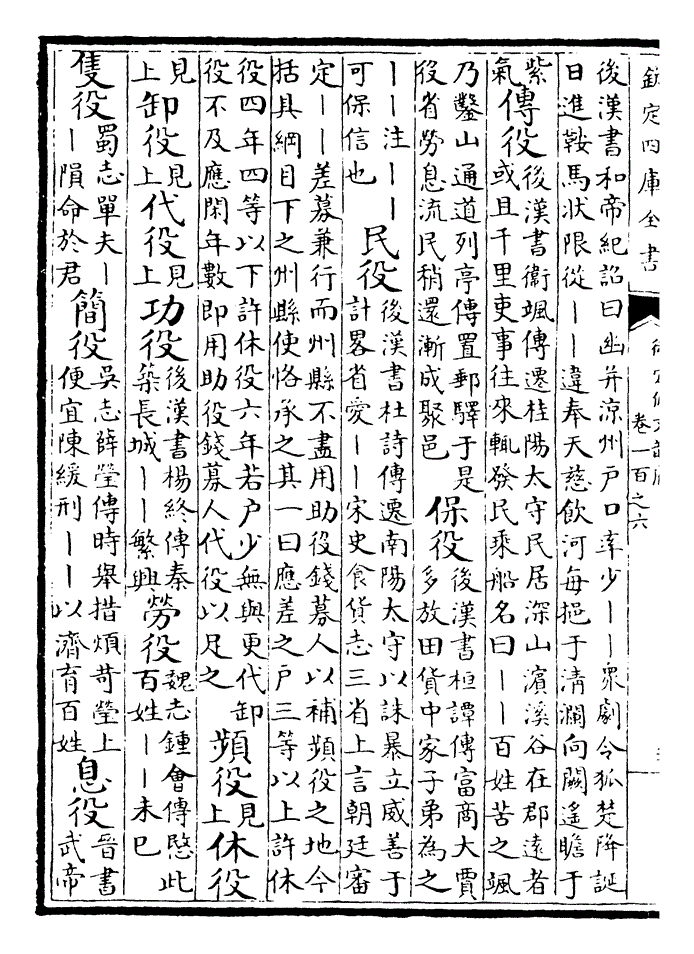 欽定四庫全書
卷一百之六
後漢書和帝紀詔曰幽并涼州戶口率少——衆劇令狐楚降誕
日進鞍馬狀限從——違奉天慈飲河每挹于清瀾向闕遙瞻于
紫氣 傳役 後漢書衞颯傳遷桂陽太守民居深山濱溪谷在郡遠者
或且千里吏事往來輒發民乘船名曰——百姓苦之颯
乃鑿山通道列亭傳置郵驛于是
役省勞息流民稍還漸成聚邑 保役 後漢書桓譚傳富商大賈
多放田貨中家子弟為之
——注——
可保信也 民役 後漢書杜詩傳遷南陽太守以誅暴立威善于
計畧省愛——宋史食貨志三省上言朝廷審
定——差募兼行而州縣不盡用助役錢募人以補頻役之地今
括具綱目下之州縣使恪承之其一曰應差之戶三等以上許休
役四年四等以下許休役六年若戶少無與更代卸
役不及應閑年數即用助役錢募人代役以足之 頻役 見上 休役
見上 卸役 見上 代役 見上 功役 後漢書楊終傳秦
築長城——繁興 勞役 魏志鍾會傳愍此
百姓——未已
隻役 蜀志單夫—
—隕命於君 簡役 吳志薛瑩傳時舉措煩苛瑩上
便宜陳緩刑——以濟育百姓 息役 晉書
武帝